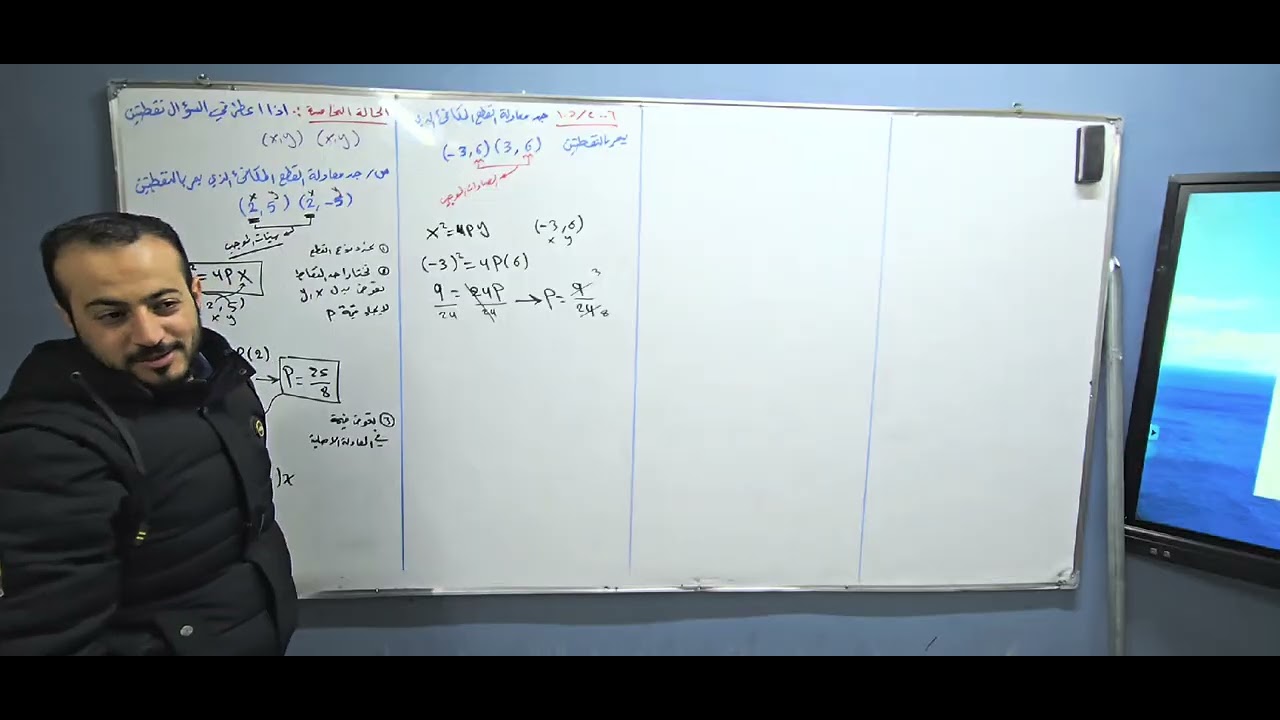 الحالة الخامسة :. اذا اعطى في السؤال نقطتين
(x,y) (x,y)
س/ جد معادلة القطع المكافئ الذي يمر بالنقطتين
(2,5) (2,-5)
x y x y
① نحدد نوع القطع
= 4PX
② نختار احد النقاط
نعوض بدل x, y
لايجاد قيمة P
2,5)
x y
P(2)
→ P = 25/8
③ نعوض قيمة
في المعادلة الاصلية
)x
جد معادلة القطع المكافئ الذي
يمر بالنقطتين
(-3,6) (3,6)
x²=4Py (-3,6)
x y
(-3)² = 4P(6)
9/24 = 24P/24 → P = 9/24
3
8